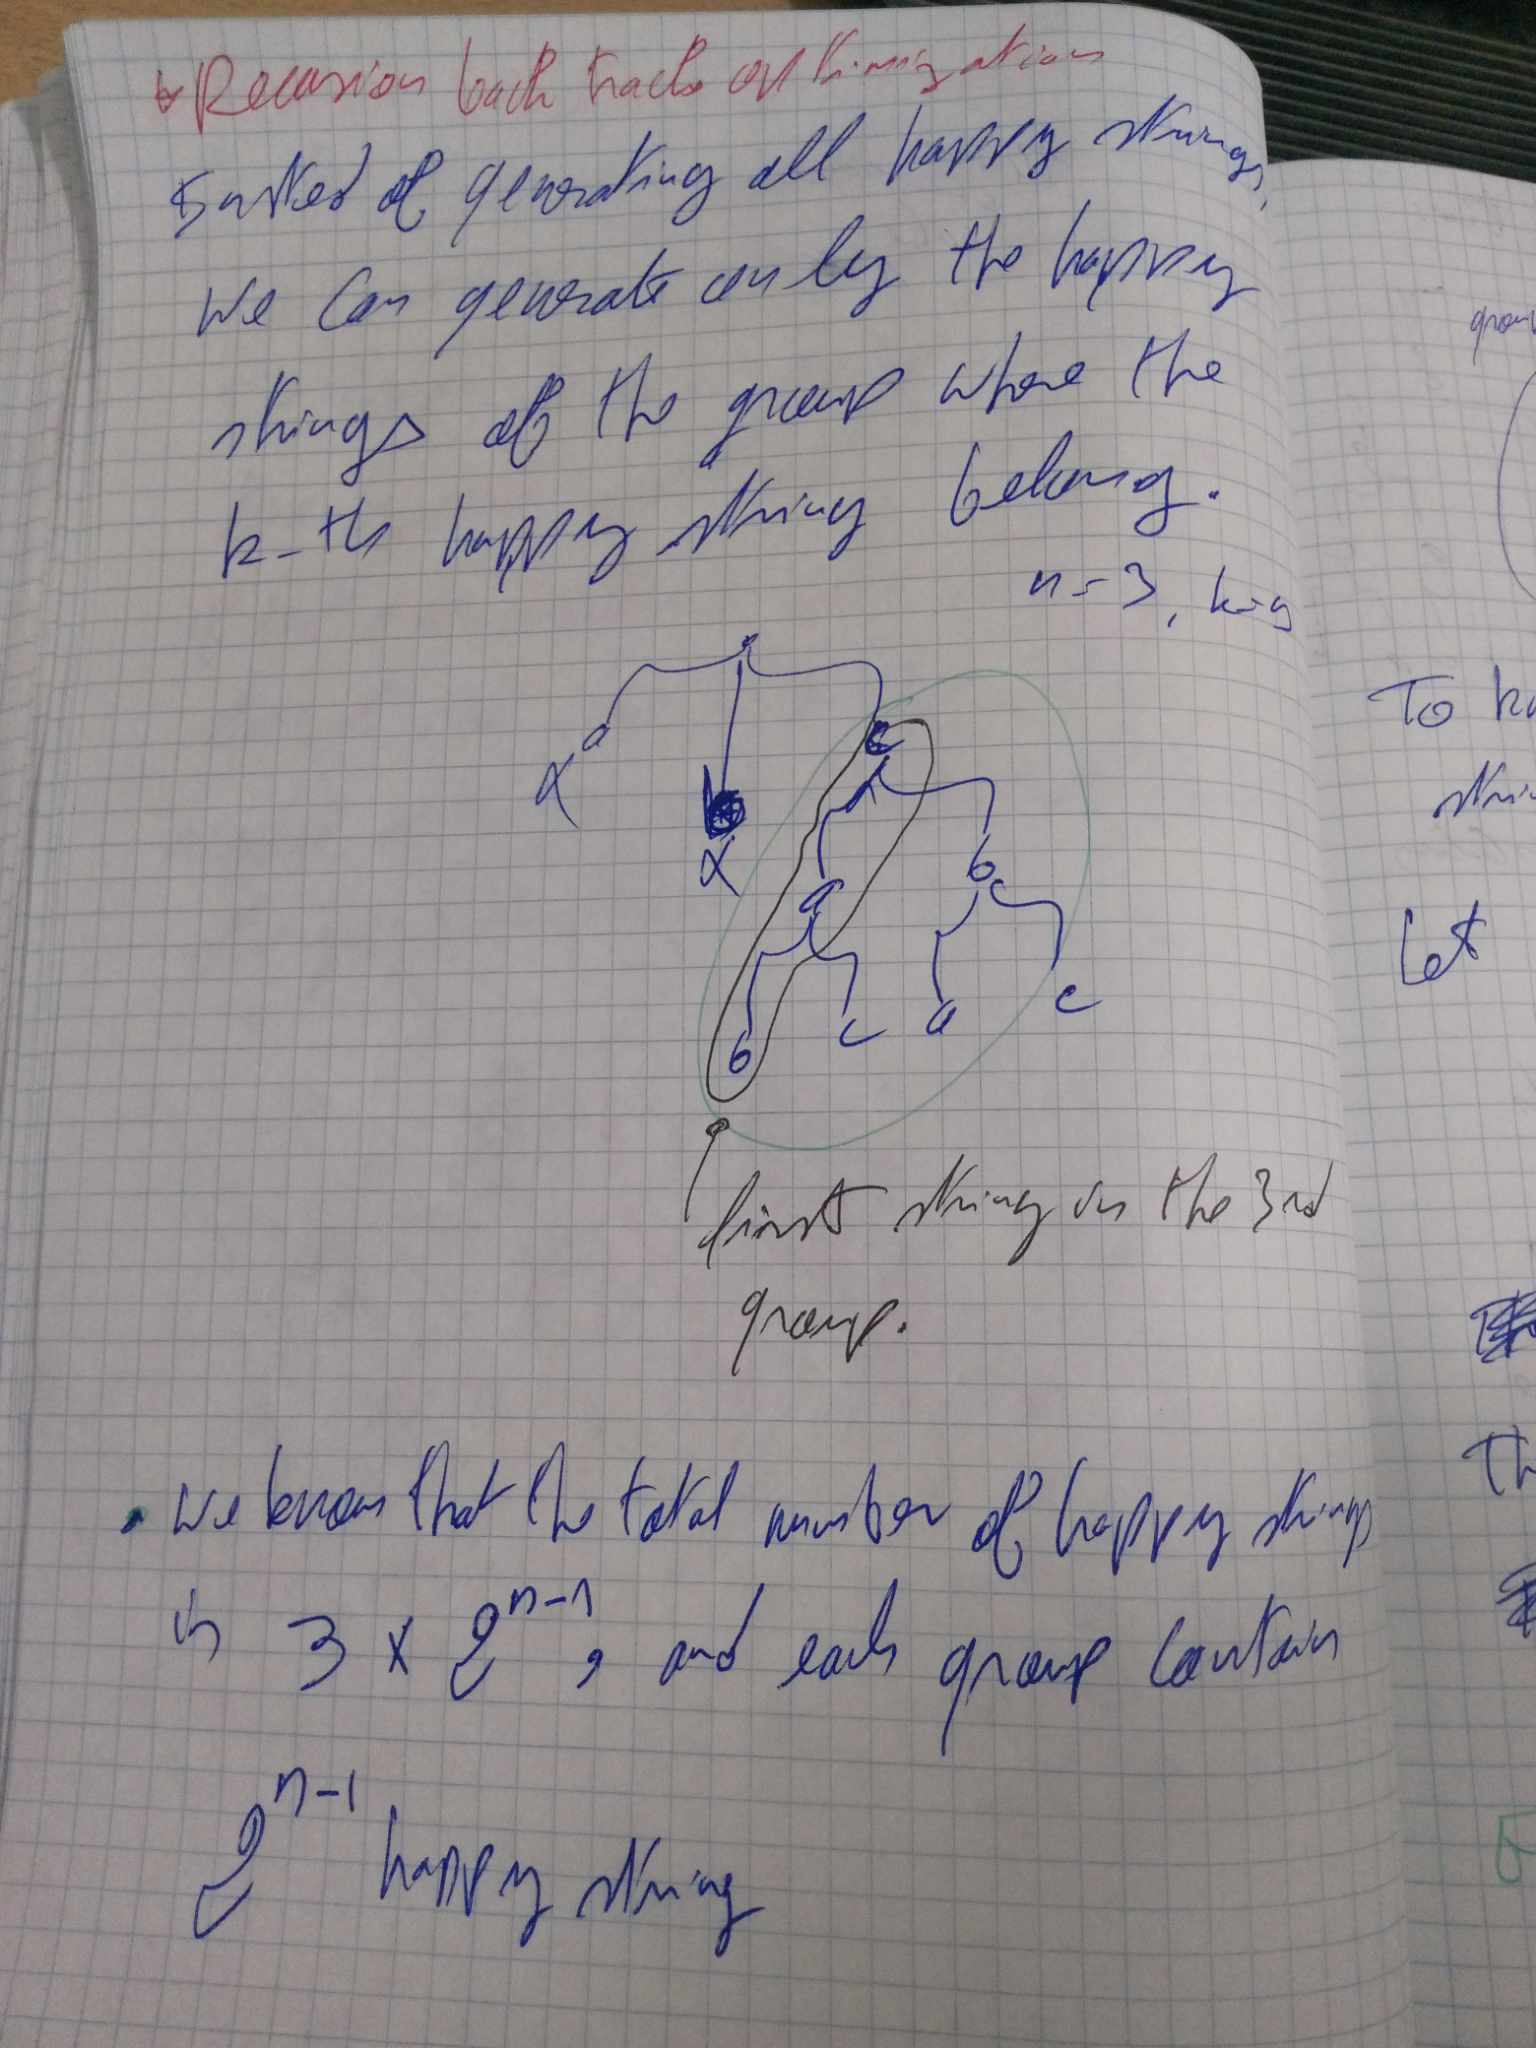 Recursion back track optimization
Insted of generating all happy strings,
we can generate only the happy
strings of the group where the
k-th happy string belong.
n=3, k=9
a
c
X
b
X
a
b
b
c
a
c
first string in the 3rd
group.
• We know that the total number of happy strings
is 3 x 2^n-1, and each group contain
2^n-1 happy string
To
Let